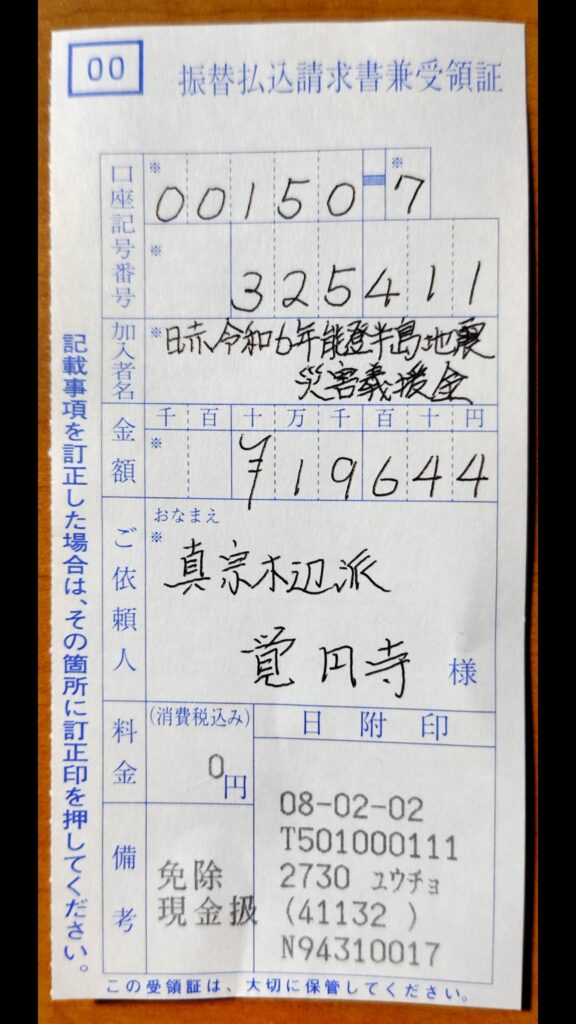 00
振替払込請求書兼受領証
口座記号番号
※ 00150-※7
※ 325411
加入者名
※ 日赤令和6年能登半島地震
災害義援金
金額
千百十万千百十円
※ ¥19644
ご依頼人
おなまえ
※
真宗木辺派
覚円寺 様
料金
(消費税込み)
0円
日附印
備考
免除
現金扱
08-02-02
T501000111
2730 ユウチョ
(41132 )
N94310017
この受領証は、大切に保管してください。
記載事項を訂正した場合は、その箇所に訂正印を押してください。